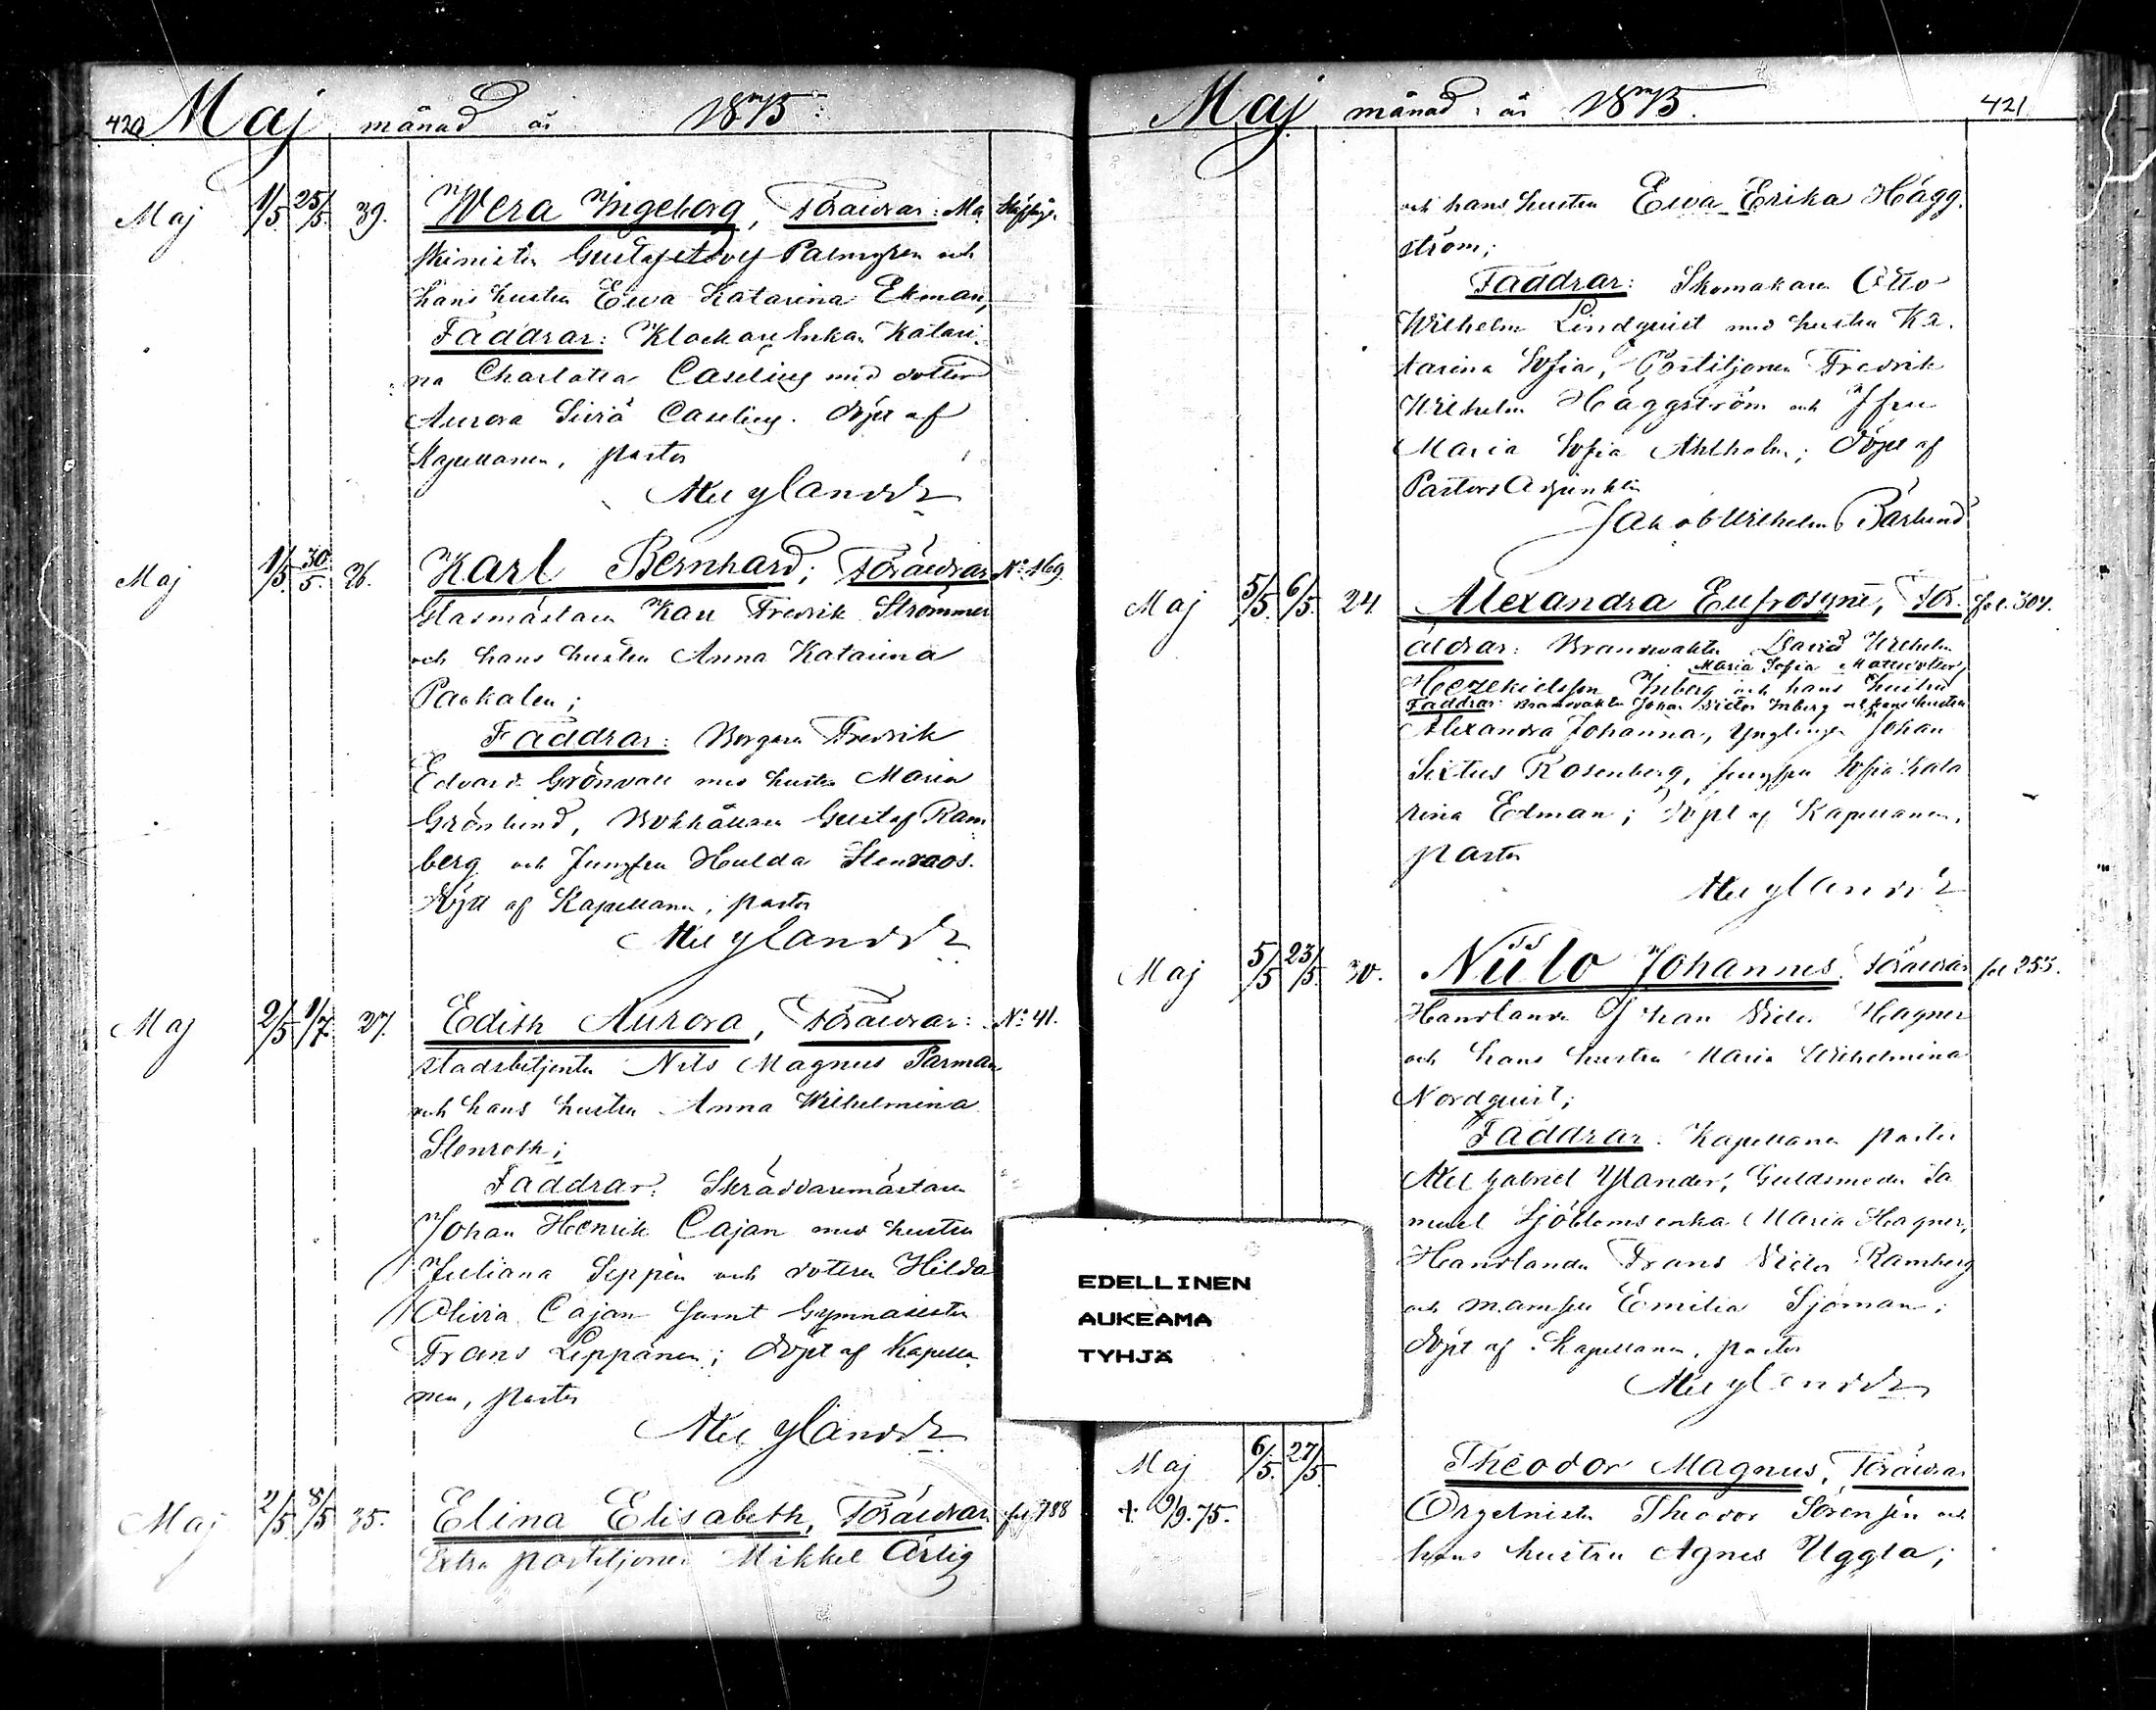 420 Maj månad år 1875.
Maj 1/5 25/5. 39. Wera Ingeborg, Föräldrar: Ma
skinisten Gustaf Adolf Palmgren och
hans hustru Ewa Katarina Ekman,
Faddrar: Klockare Enkan Katari
na Charlotta Caselius med dotter
Aurora Siviä Caselius. Döpt af
Kapellanen, pastor
Axel Ylander
Maj 1/5. 30/5. 26. Karl Bernhard; Föräldrar No 469
Glasmästaren Karl Fredrik Strömmer
och hans hustru Anna Katarina
Paukalen;
Faddrar: Borgaren Fredrik
Edvard Grönvall med hustru Maria
Grönlund, Bokhållaren Gustaf Ram
berg och Jungfru Hulda Stenroos.
Döpt af Kapellanen, pastor
Axel Ylander
Maj 2/5 1/7 27. Edith Aurora, Föräldrar: No 41.
stadsbetjenten Nils Magnus Parman
och hans hustru Anna Wilhelmina
Stenroth;
Faddrar: Skräddaremästaren
Johan Henrik Cajan med hustru
Juliana Seppän och dotteren Hilda
Olivia Cajan samt Gymnasisten
Frans Leppänen; döpt af Kapella
nen, pastor
Axel Ylander
Maj 2/5 8/5 35. Elina Elisabeth, Föräldrar 788
Extra postiljonen Mikkel Ärlig
Maj månad år 1875. 421
och hans hustru Ewa Erika Hägg.
ström;
Faddrar: Skomakaren Otto
Wilhelm Lindquist med hustru Ka.
tarina Sofia, Postiljonen Fredrik
Wilhelm Häggström och Jfru
Maria Sofia Ahlholm; Döpt af
Pastors Adjunkten
Jakob Wilhelm Bärlund
Maj 5/5. 6/5. 24. Alexandra Eufrosyne, För. fol. 307.
äldrar: Brandvakten David Wilhelm
Maria Sofia Mattsdotter
Hezekielsson Inberg och hans hustru
Faddrar: Brandvakten Johan Victor Inberg och hans hustru
Alexandra Johanna, Ynglingen Johan
Sixtus Rosenberg, Jungfru Sofia Kata
rina Edman; Döpt af Kapellanen,
pastor
Axel Ylander
Maj 5/5 23/5. 30. Niilo Johannes Föräldrar fol 255.
Handlanden Johan Victor Hagner
och hans hustru Maria Wilhelmina
Nordquist;
Faddrar: Kapellanen pastor
Axel Gabriel Ylander, Guldsmeden Sa
muel Sjöbloms enka Maria Hagner,
Handlanden Frans Victor Ramberg
och mamsell Emilia Sjöman;
döpt af Kapellanen, pastor
Axel Ylander
EDELLINEN
AUKEAMA
TYHJÄ
Maj 6/5. 27/5. Theodor Magnus, Föräldrar
+ 9/9.75. Orgelnisten Theodor Sörensen och
hans hustru Agnes Uggla;